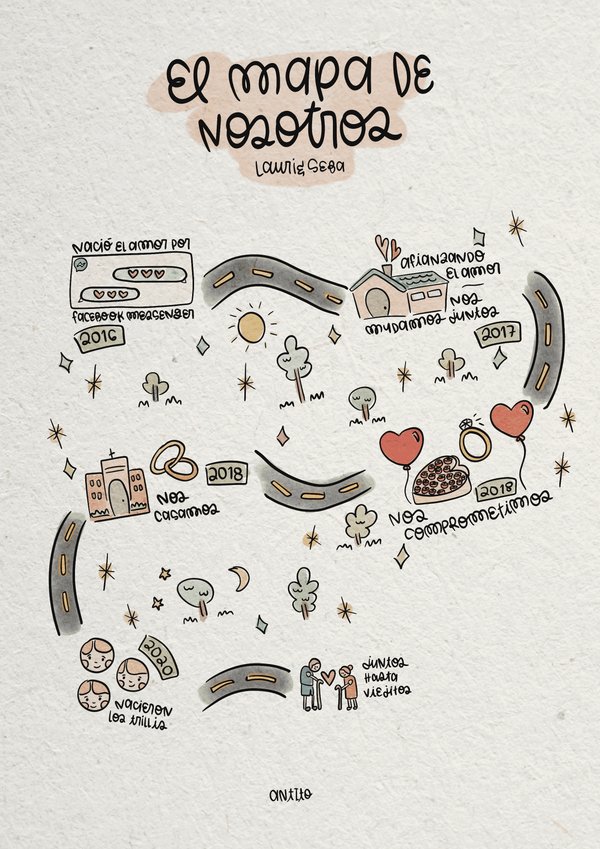 El mapa de
nosotros
Lauri & Seba
nació el amor por
facebook messenger
2016
afianzando
el amor
nos
mudamos juntos
2017
2018
nos
comprometimos
2018
nos
casamos
2020
nacieron
los trillis
juntos
hasta
viejitos
antito